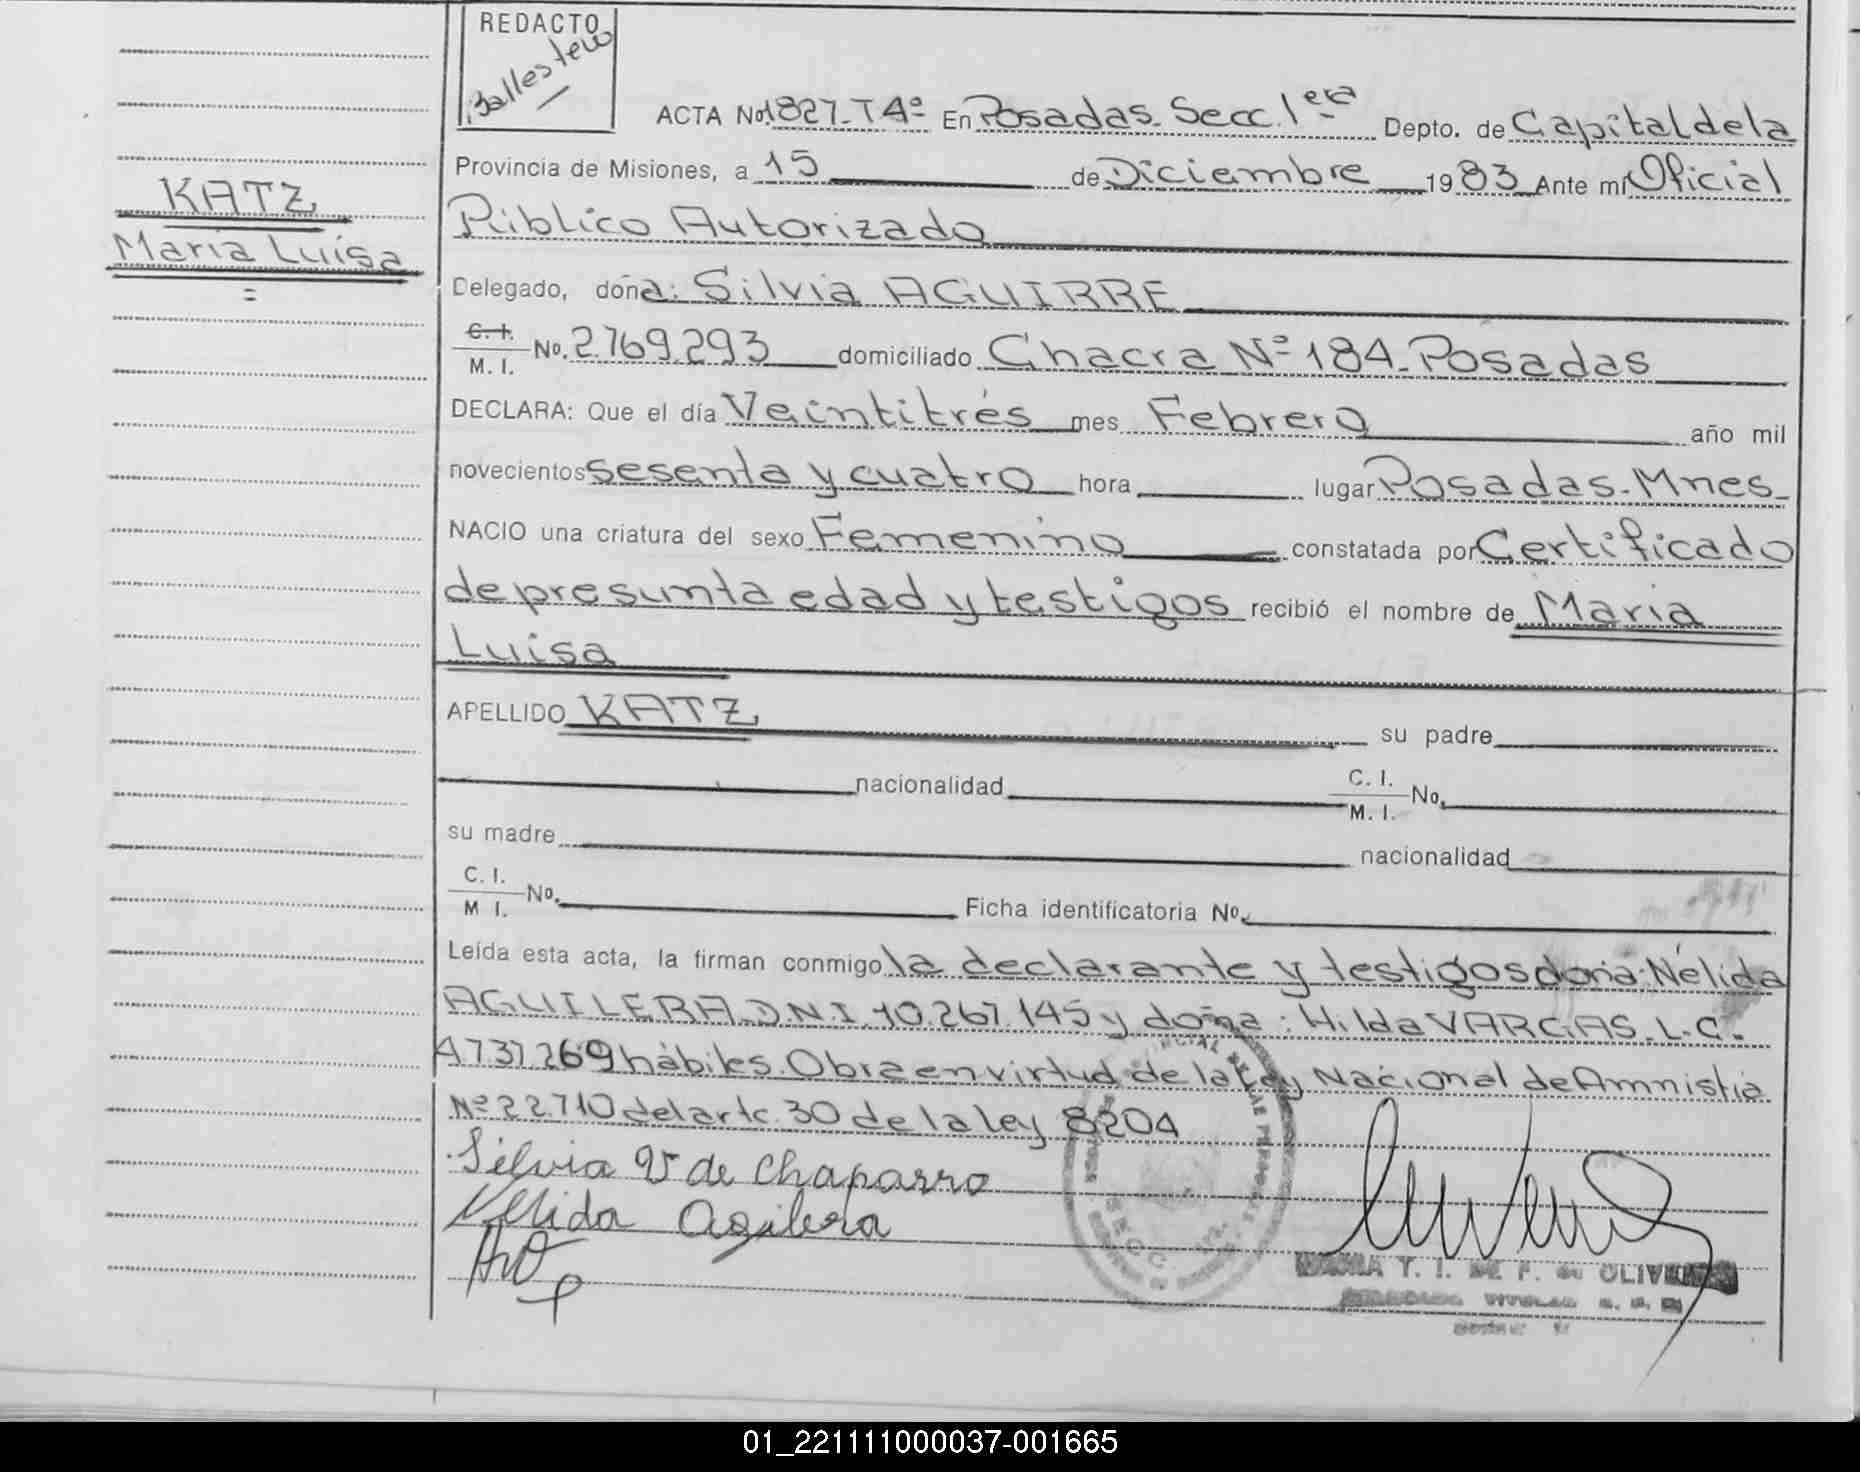 REDACTO
Ballestero
ACTA No. 1827-T4º En Posadas Secc. 1era Depto. de Capital de la
Provincia de Misiones, a 15 de Diciembre 1983 Ante mi Oficial
Público Autorizado
KATZ
María Luisa
=
Delegado, doña: Silvia AGUIRRE
C. I.
M. I. No. 2.769.293 domiciliado Chacra Nº 184-Posadas
DECLARA: Que el día Veintitrés mes Febrero año mil
novecientos sesenta y cuatro hora lugar Posadas-Mnes
NACIO una criatura del sexo Femenino constatada por Certificado
de presunta edad y testigos recibió el nombre de María
Luisa
APELLIDO KATZ su padre
nacionalidad C. I. No.
M. I.
su madre nacionalidad
C. I. No.
M I. Ficha identificatoria No.
Leída esta acta, la firman conmigo la declarante y testigos doña: Nélida
AGUILERA D.N.I. 10.267.145 y doña: Hilda VARGAS L.C.
4.737.269 hábiles. Obra en virtud de la Ley Nacional de Amnistia
Nº 22.710 del artc. 30 de la ley 8204
Silvia de Chaparro
Nelida Agilera
SECC
T. I. DE F. de OLIVERA
01_221111000037-001665